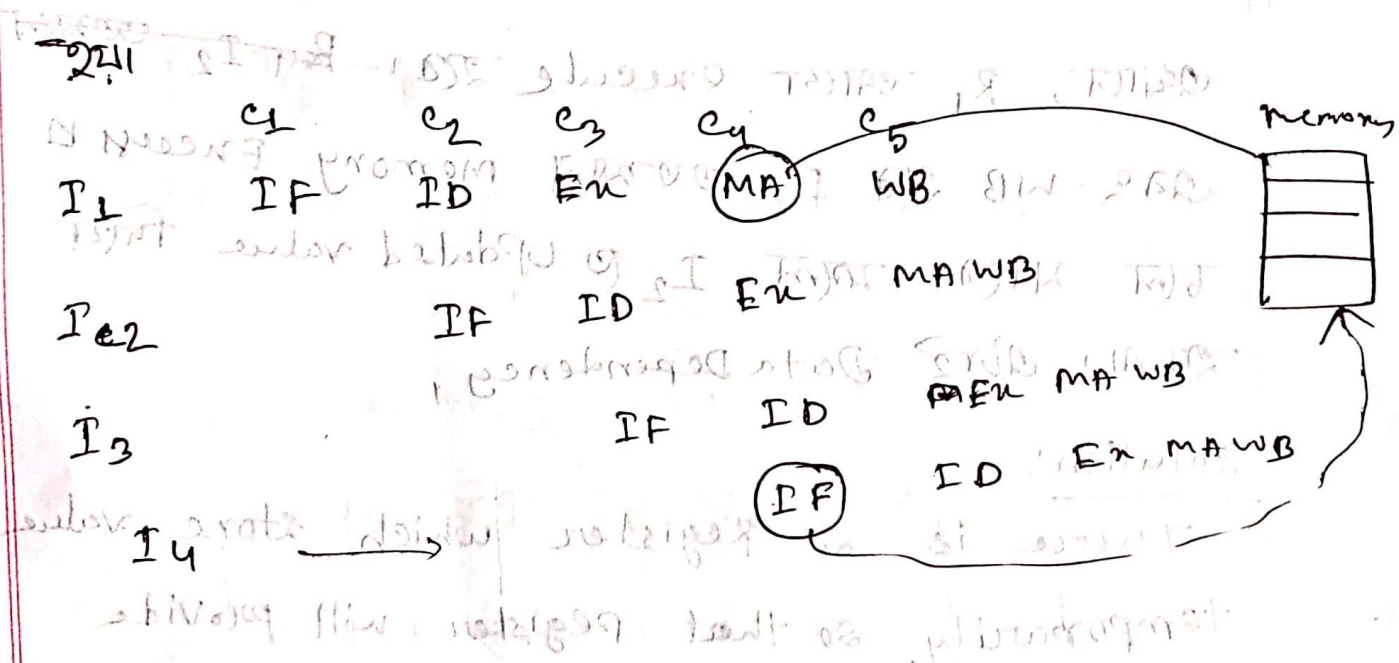 হয়।
C1 C2 C3 C4 C5 memory
I1 IF ID Ex MA WB
I2 IF ID Ex MA WB
I3 IF ID Ex MA WB
I4 IF ID Ex MA WB